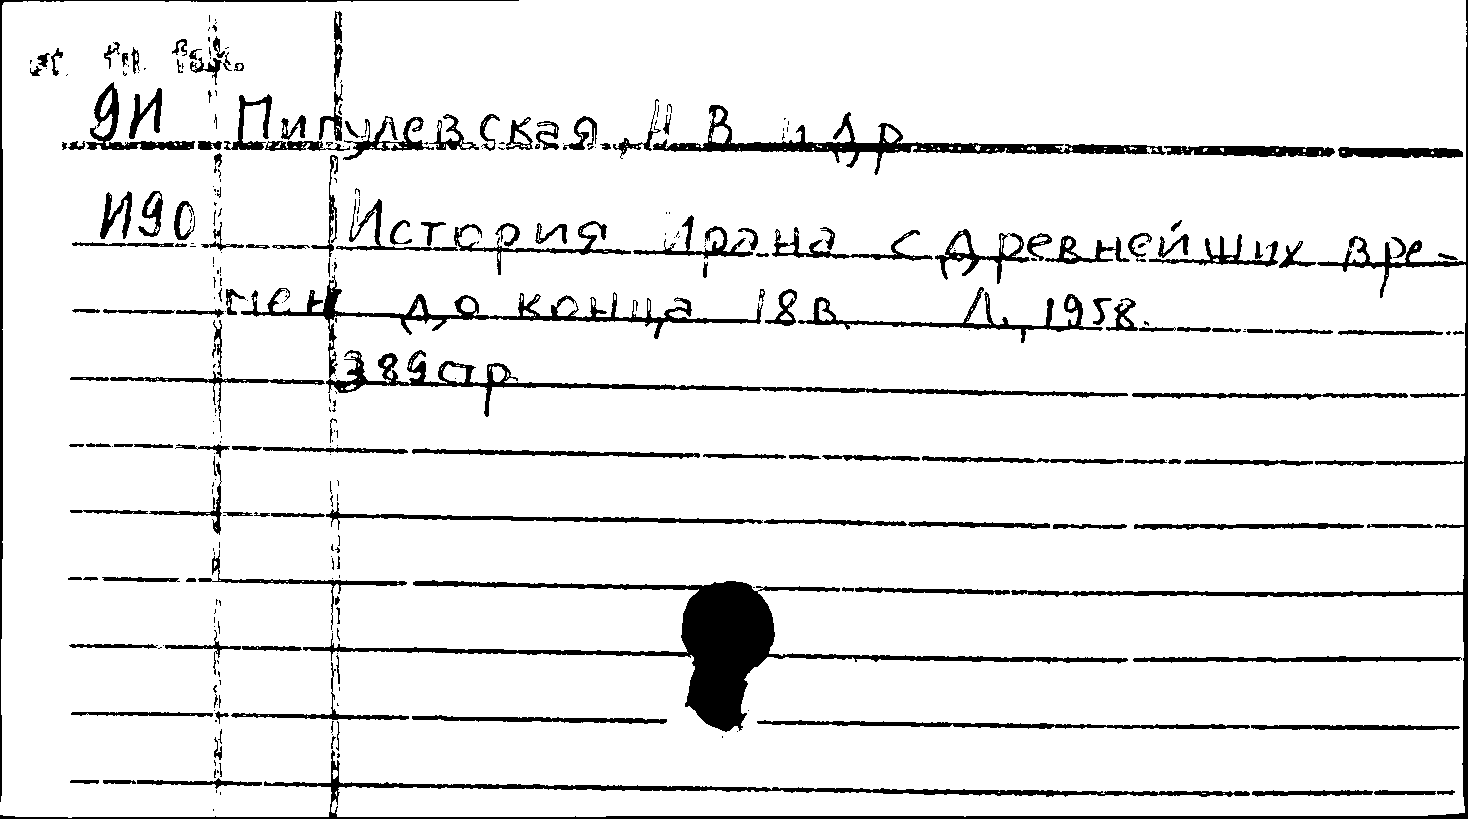 9И Пигулевская, Н В и др
И90 История Ирана с древнейших вре-
мен до конца 18 в. Л., 1958.
389 стр